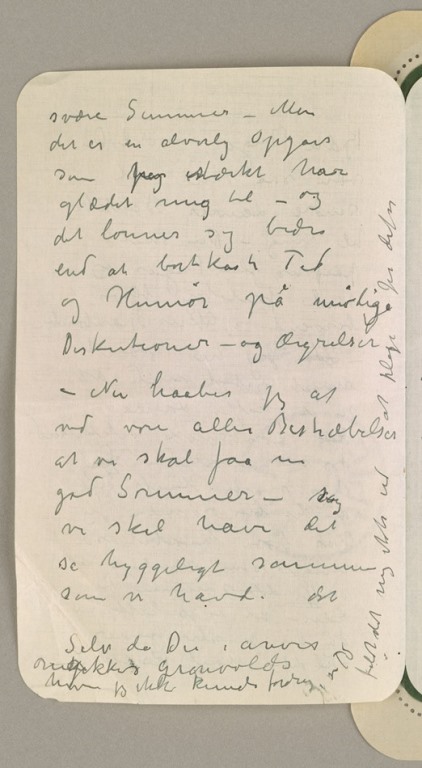 svære Summer – Men
det er en alvorlig Opgave
som jeg stærkt har
glædet mig til – og
det lønner sig bedre
end at bortkaste Tid
og Humør på unødige
Diskutioner – og Ærgrelser
– Nu haaber jeg at
ved vore alles Bestræbelser
at vi skal faa en
god Sommer –
vi skal have det
så hyggeligt sammen
som vi havd. det
Selv da Du i
Grønvolds
jeg ikke kunde